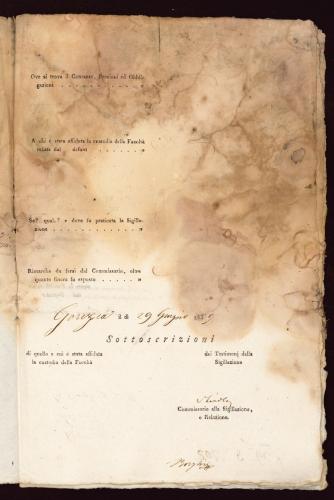 Ove si trova il Contante, Preziosi ed Obbli-
gazioni . . . . . . . . . . . . . "
A chi è stata affidata la custodia della Facoltà
relitta dal defunto . . . . . . . . . "
Se?, qual.? e dove fu praticata la Sigilla-
zione . . . . . . . . . . . . . "
Rimarchi da farsi dal Commissario, oltre
quanto finora fu esposto . . . . . . "
Gorizia li 29 Giugno
Sottoscrizioni
di quello a cui è stata affidata
la custodia della Facoltà
dei Testimonj della
Sigillazione
Commissario alla Sigillazione,
e Relazione.